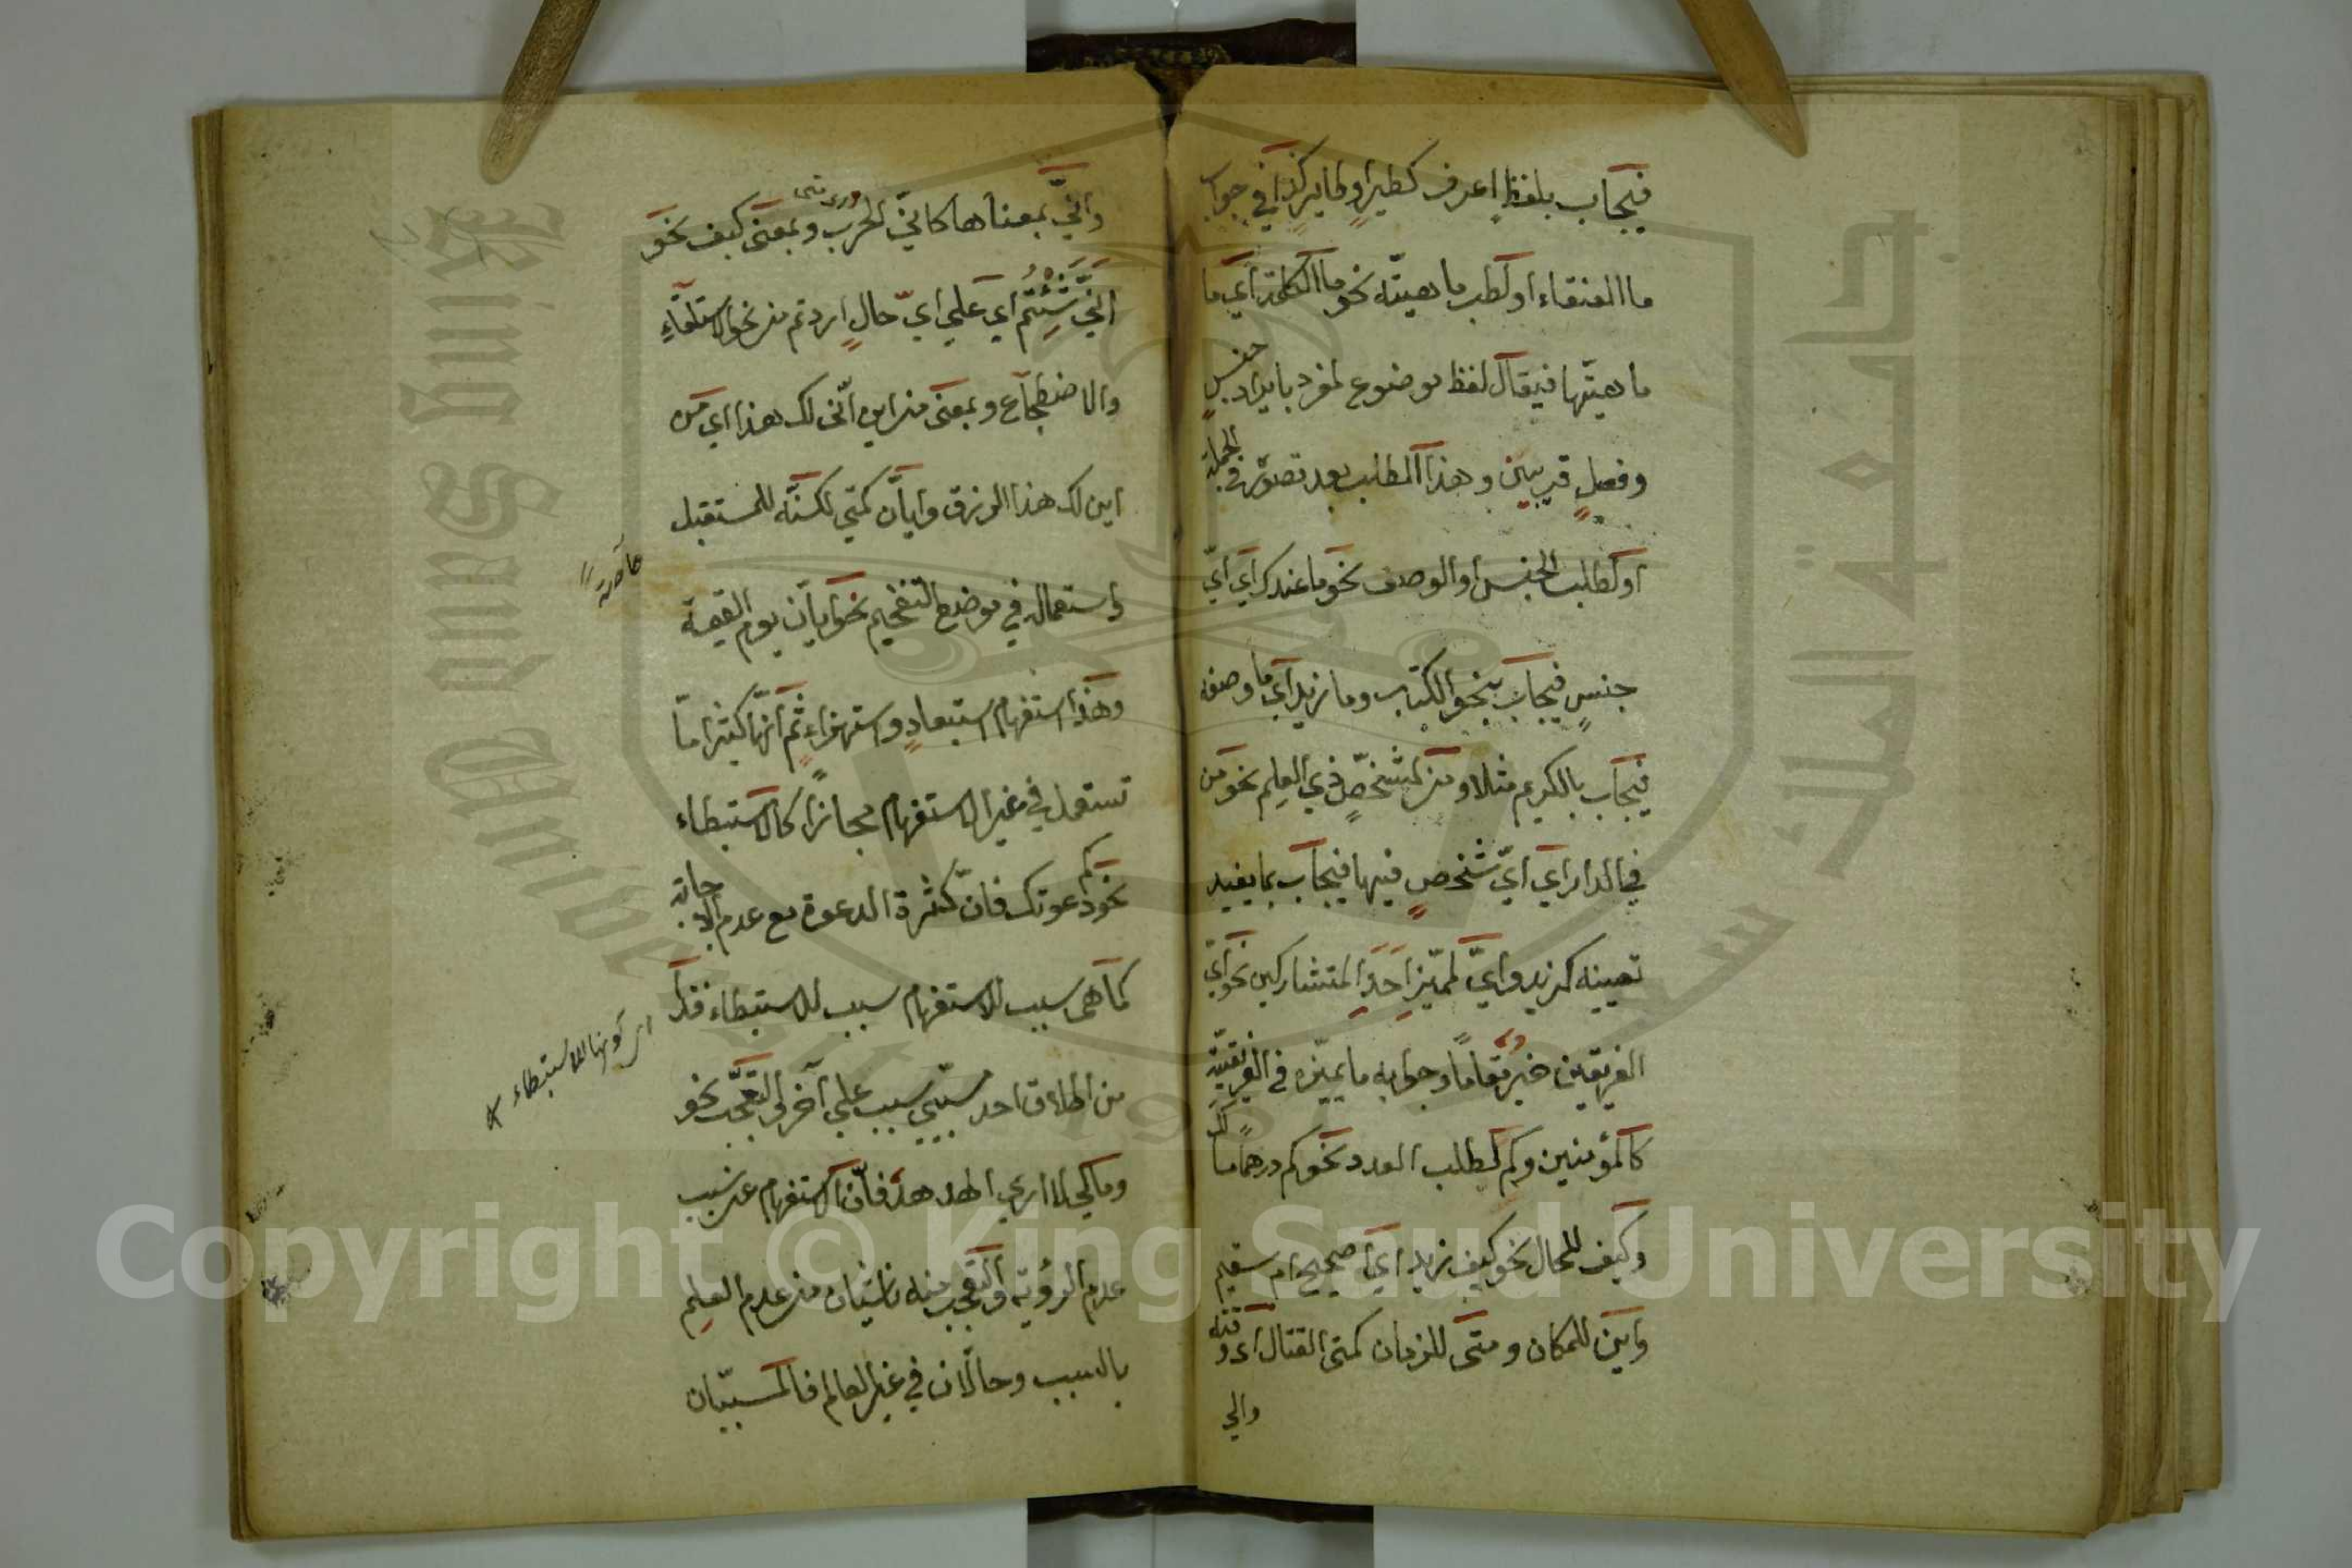 فيجاب بلفظ اعرف كطير او طاير كذا في جواب
ما العنقاء او لطلب ماهيته نحو ما الكلمة اي ما
ماهيتها فيقال لفظ موضوع لمفرد بايراد جنس
وفصل قريبين وهذا المطلب بعد تصوره في الجملة
او لطلب الجنس او الوصف نحو ما عندك اي اي
جنس فيجاب بنحو الكتاب وما زيد اي ما وصفه
فيجاب بالكريم مثلا ومن لمشخص ذي العلم نحو من
في الدار اي اي شخص فيها فيجاب بما يفيد
تعيينه كزيد واي لمميز احد المتشاركين نحو اي
الفريقين خير مقاما وجوابه ما يميزه في الفريقية
كالمؤمنين وكم لطلب العدد نحو كم درهما لك
وكيف للحال نحو كيف زيد اي اصحيح ام سقيم
واين للمكان ومتى للزمان كمتى القتال اي وقته
واني
واني بمعناها كاني الحرب وبمعنى كيف نحو
اي متى
اني شئتم اي علي اي حال اردتم من نحو الاستلقاء
والاضطجاع وبمعنى من اين انى لك هذا اي من
اين لك هذا الرزق وايان كمتي لكنه للمستقبل
واستعماله في موضع التفخيم نحو ايان يوم القيمة
وهذا استفهام استبعاد واستهزاء ثم انها كثيرا ما
تستعمل في غير الاستفهام مجازا كالاستبطاء
نحو كم دعوتك فان كثرة الدعوة مع عدم الاجابة
كما هى سبب للاستفهام سبب للاستبطاء فذلك
اى كونها للاستبطاء
من اطلاق احد مسببي سبب علي آخر والتعجب نحو
ومالي لا اري الهدهد فان الاستفهام عن سبب
عدم الرؤية والتعجب منه ناشيان من عدم العلم
بالسبب وحالان في غير العالم فالمسببان
Copyright © King Saud University
جامعة الملك سعود
King Saud University
1957